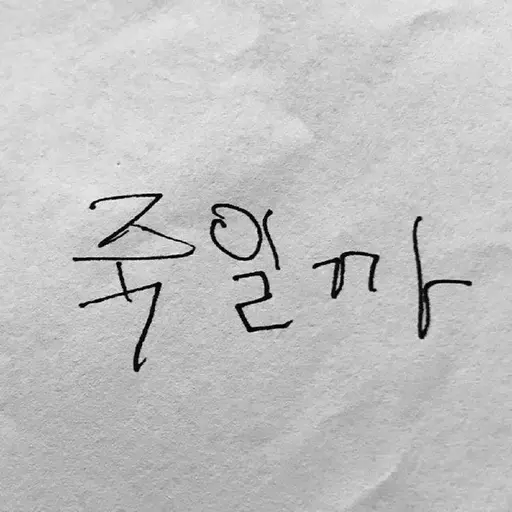 죽일까